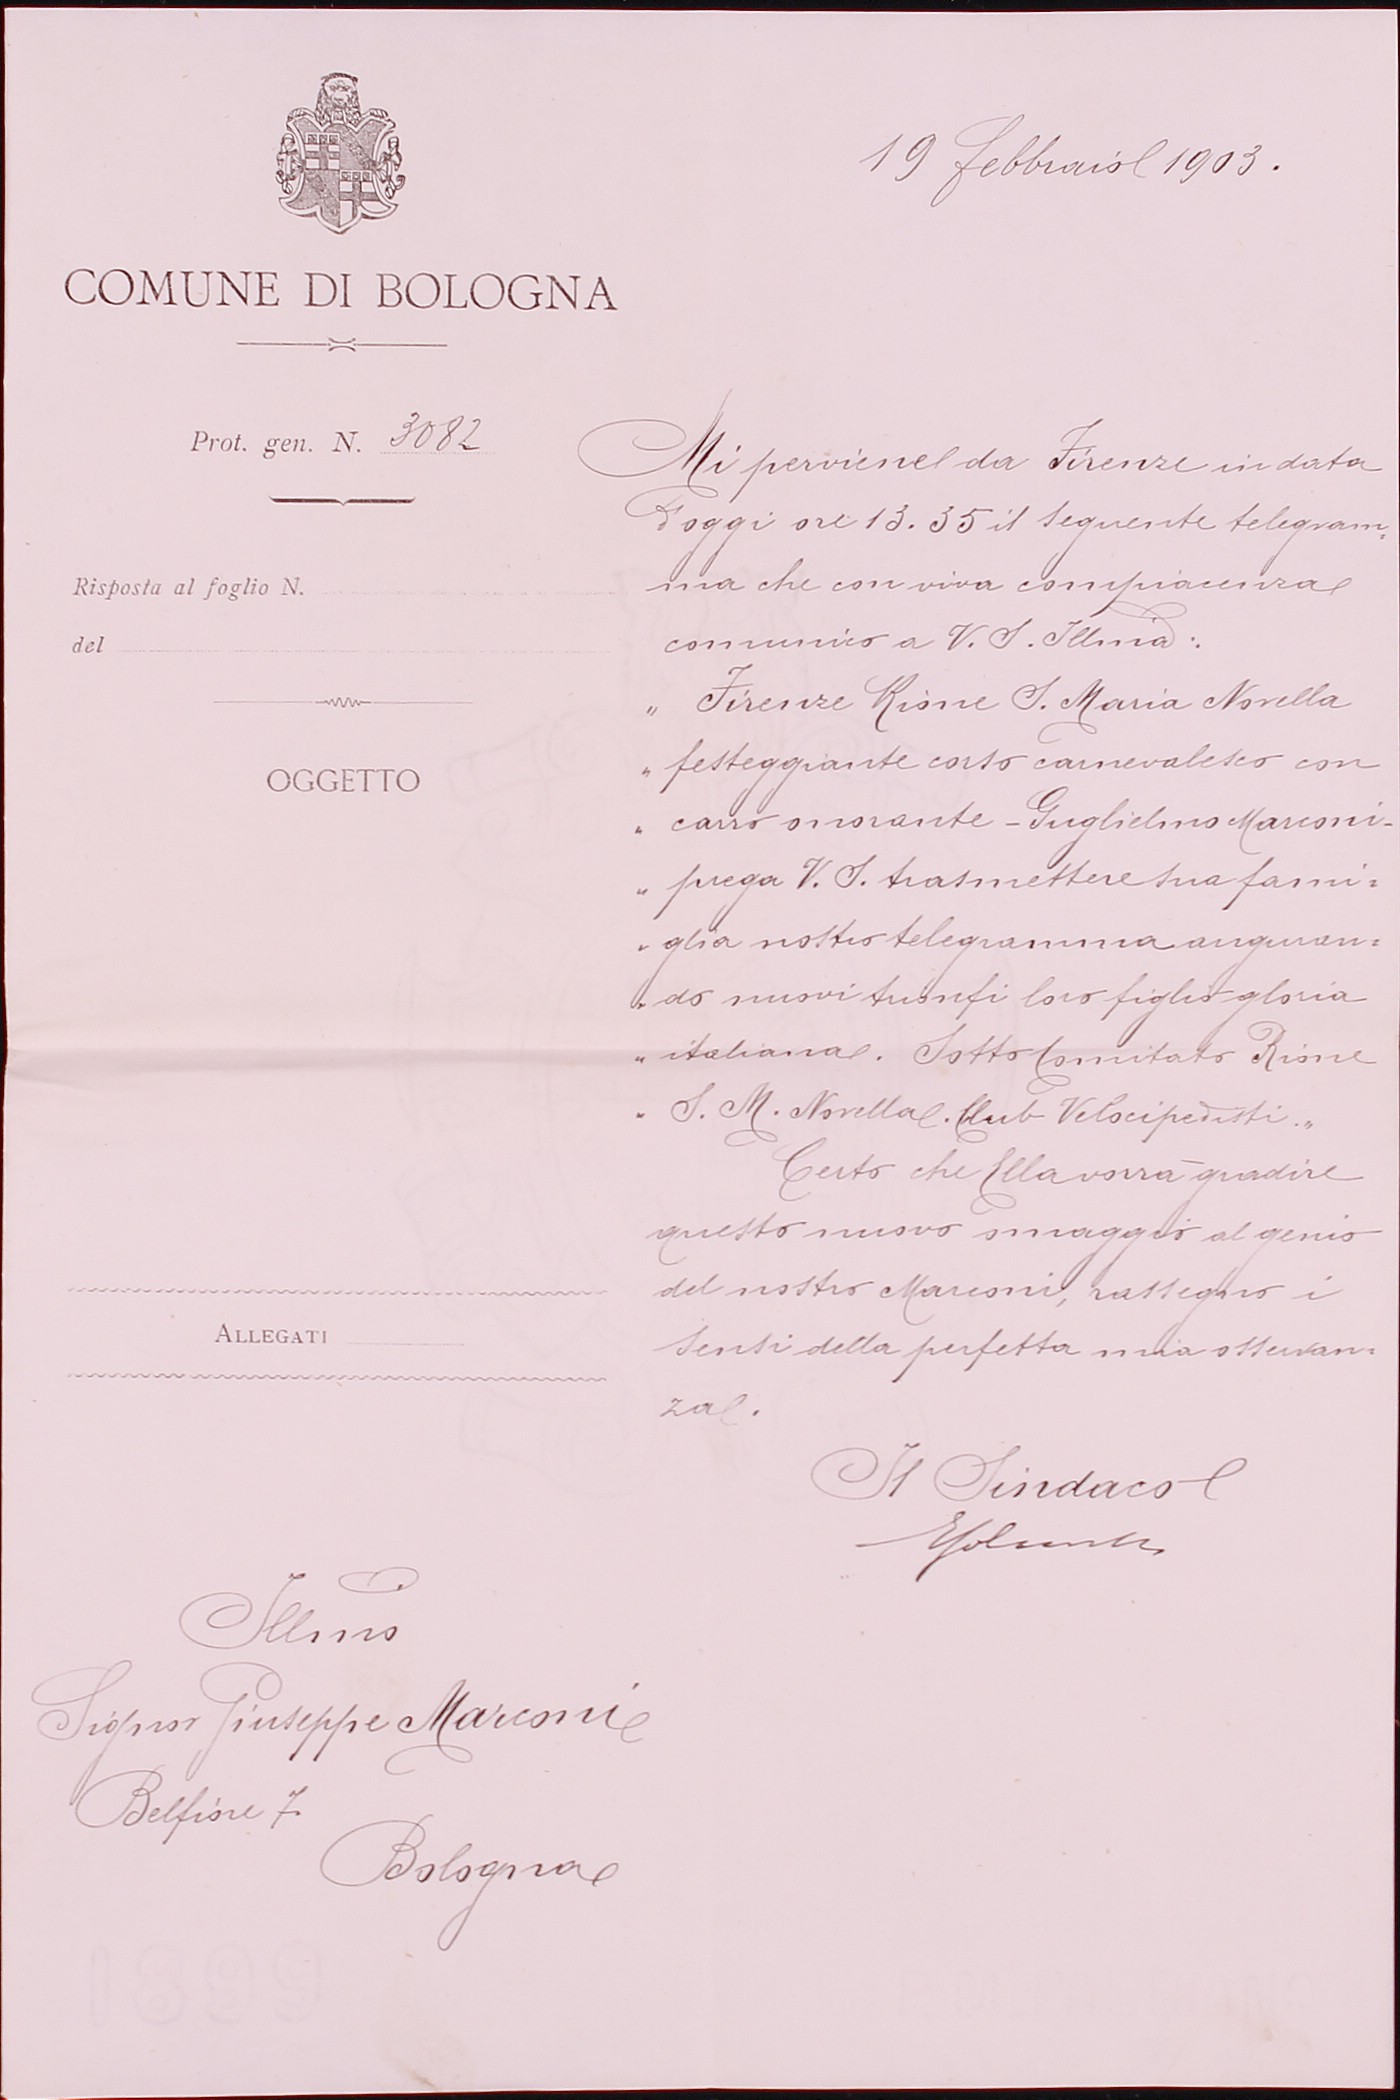 19 Febbraio 1903.
COMUNE DI BOLOGNA
Prot. gen. N. 3082
Risposta al foglio N.
del
OGGETTO
ALLEGATI
Mi perviene da Firenze in data
d'oggi ore 13.35 il seguente telegram=
ma che con viva compiacenza
comunico a V. S. Illma:
„ Firenze Rione S. Maria Novella
„ festeggiante corso carnevalesco con
„ carro onorante - Guglielmo Marconi -
„ prega V. S. trasmettere sua fami=
„ glia nostro telegramma auguran=
„ do nuovi trionfi loro figlio gloria
„ italiana. Sotto Comitato Rione
„ S. M. Novella. Club Velocipedisti „
Certo che Ella vorrà gradire
questo nuovo omaggio al genio
del nostro Marconi, rassegno i
sensi della perfetta mia osservan=
za.
Il Sindaco
Illmo
Signor Giuseppe Marconi
Belfiore 7
Bologna
1899